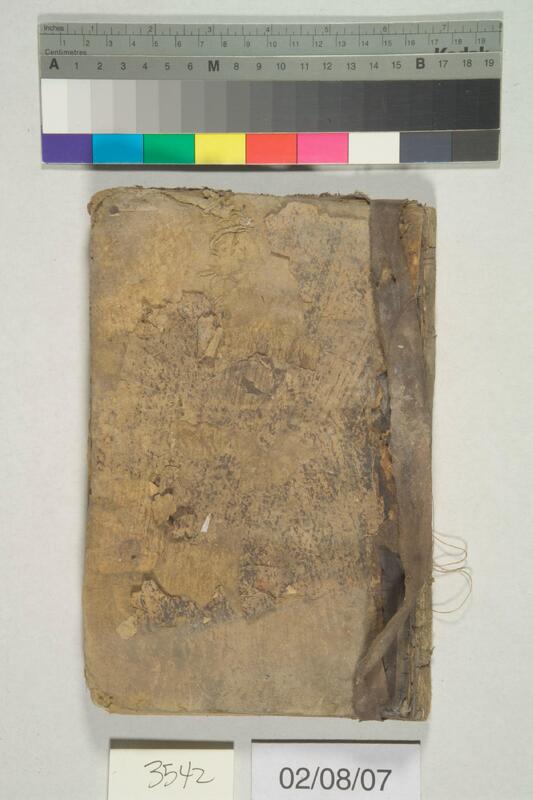 Inches 1 2 3 4 5 6 7
Centimetres 1 2 3 4 5 6 7 8 9 10 11 12 13 14 15 16 17 18 19
Kodak
A 1 2 3 4 5 6 M 8 9 10 11 12 13 14 15 B 17 18 19
3542
02/08/07